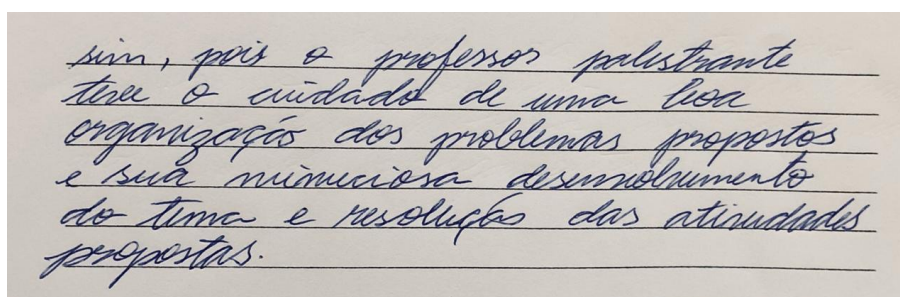 sim, pois o professor palestrante
teve o cuidado de uma boa
organização dos problemas propostos
e sua minuciosa desenvolvimento
do tema e resolução das atividades
propostas.